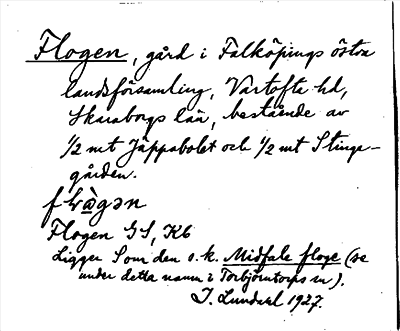 Flogen, gård i Falköpings östra
landsförsamling, Vartofta hd,
Skaraborgs län, bestående av
1/2 mt Jäppabolet och 1/2 mt Stinge-
gården.
Flogen GS, K6
Ligger Som den s.k. Midfale floge (se
under detta namn i Torbjörntorps sn).
I. Lundahl 1927.